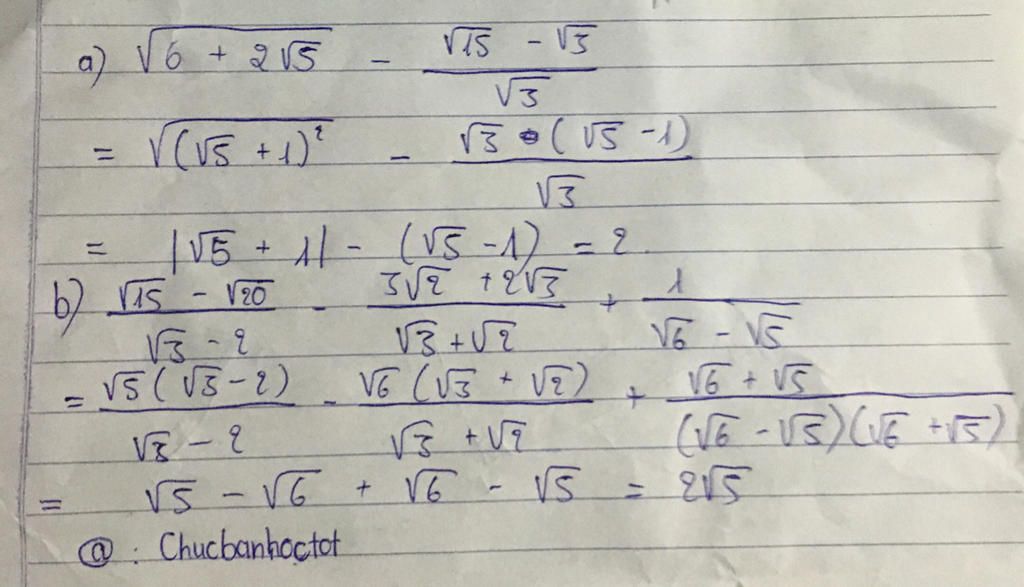 a) √(6 + 2√5) - (√15 - √3)/√3
= √((√5 + 1)²) - (√3 · (√5 - 1))/√3
= |√5 + 1| - (√5 - 1) = 2
b) (√15 - √20)/(√3 - 2) - (3√2 + 2√3)/(√3 + √2) + 1/(√6 - √5)
= (√5(√3 - 2))/(√3 - 2) - (√6(√3 + √2))/(√3 + √2) + (√6 + √5)/((√6 - √5)(√6 + √5))
= √5 - √6 + √6 - √5 = 2√5
@ : Chucbanhoctot